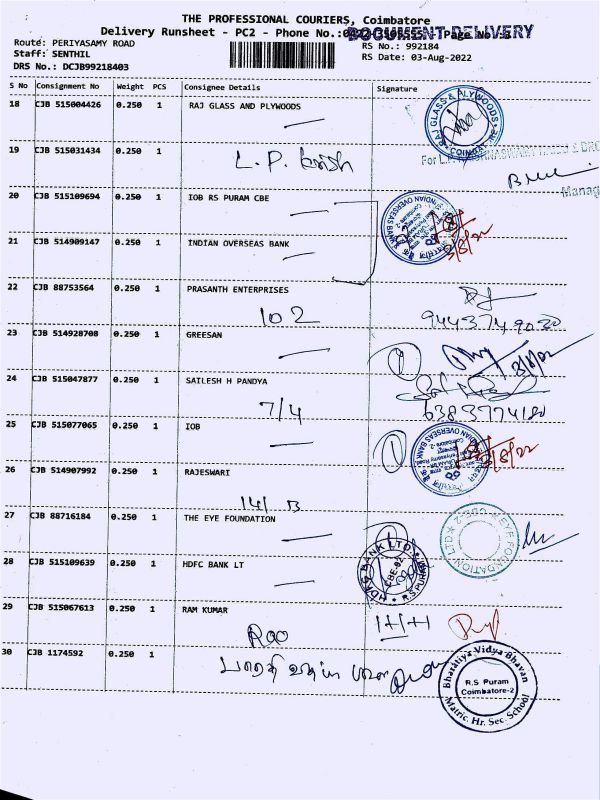 THE PROFESSIONAL COURIERS, Coimbatore
Delivery Runsheet - PC2 - Phone No.: Page No.
DOCUMENT DELIVERY
Route: PERIYASAMY ROAD
RS No.: 992184
Staff: SENTHIL
RS Date: 03-Aug-2022
DRS No.: DCJB99218403
S No Consignment No Weight PCS Consignee Details Signature
18 CJB 515004426 0.250 1 RAJ GLASS AND PLYWOODS
RAJ GLASS & PLYWOODS COIMBATORE
19 CJB 515031434 0.250 1
L.P. krish
For L.
Manag
20 CJB 515109694 0.250 1 IOB RS PURAM CBE
INDIAN OVERSEAS BANK
3/8/22
21 CJB 514909147 0.250 1 INDIAN OVERSEAS BANK
22 CJB 88753564 0.250 1 PRASANTH ENTERPRISES
102
9443749030
23 CJB 514928708 0.250 1 GREESAN
3/8/22
24 CJB 515047877 0.250 1 SAILESH H PANDYA
7/4
25 CJB 515077065 0.250 1 IOB
INDIAN OVERSEAS BANK
3/8/22
26 CJB 514907992 0.250 1 RAJESWARI
141 B
27 CJB 88716184 0.250 1 THE EYE FOUNDATION
EYE FOUNDATION LTD
28 CJB 515109639 0.250 1 HDFC BANK LT
BANK LTD. R.S.PURAM
29 CJB 515067613 0.250 1 RAM KUMAR
30 CJB 1174592 0.250 1
Bharatiya Vidya Bhavan
R.S Puram
Coimbatore-2
Matric. Hr. Sec. School